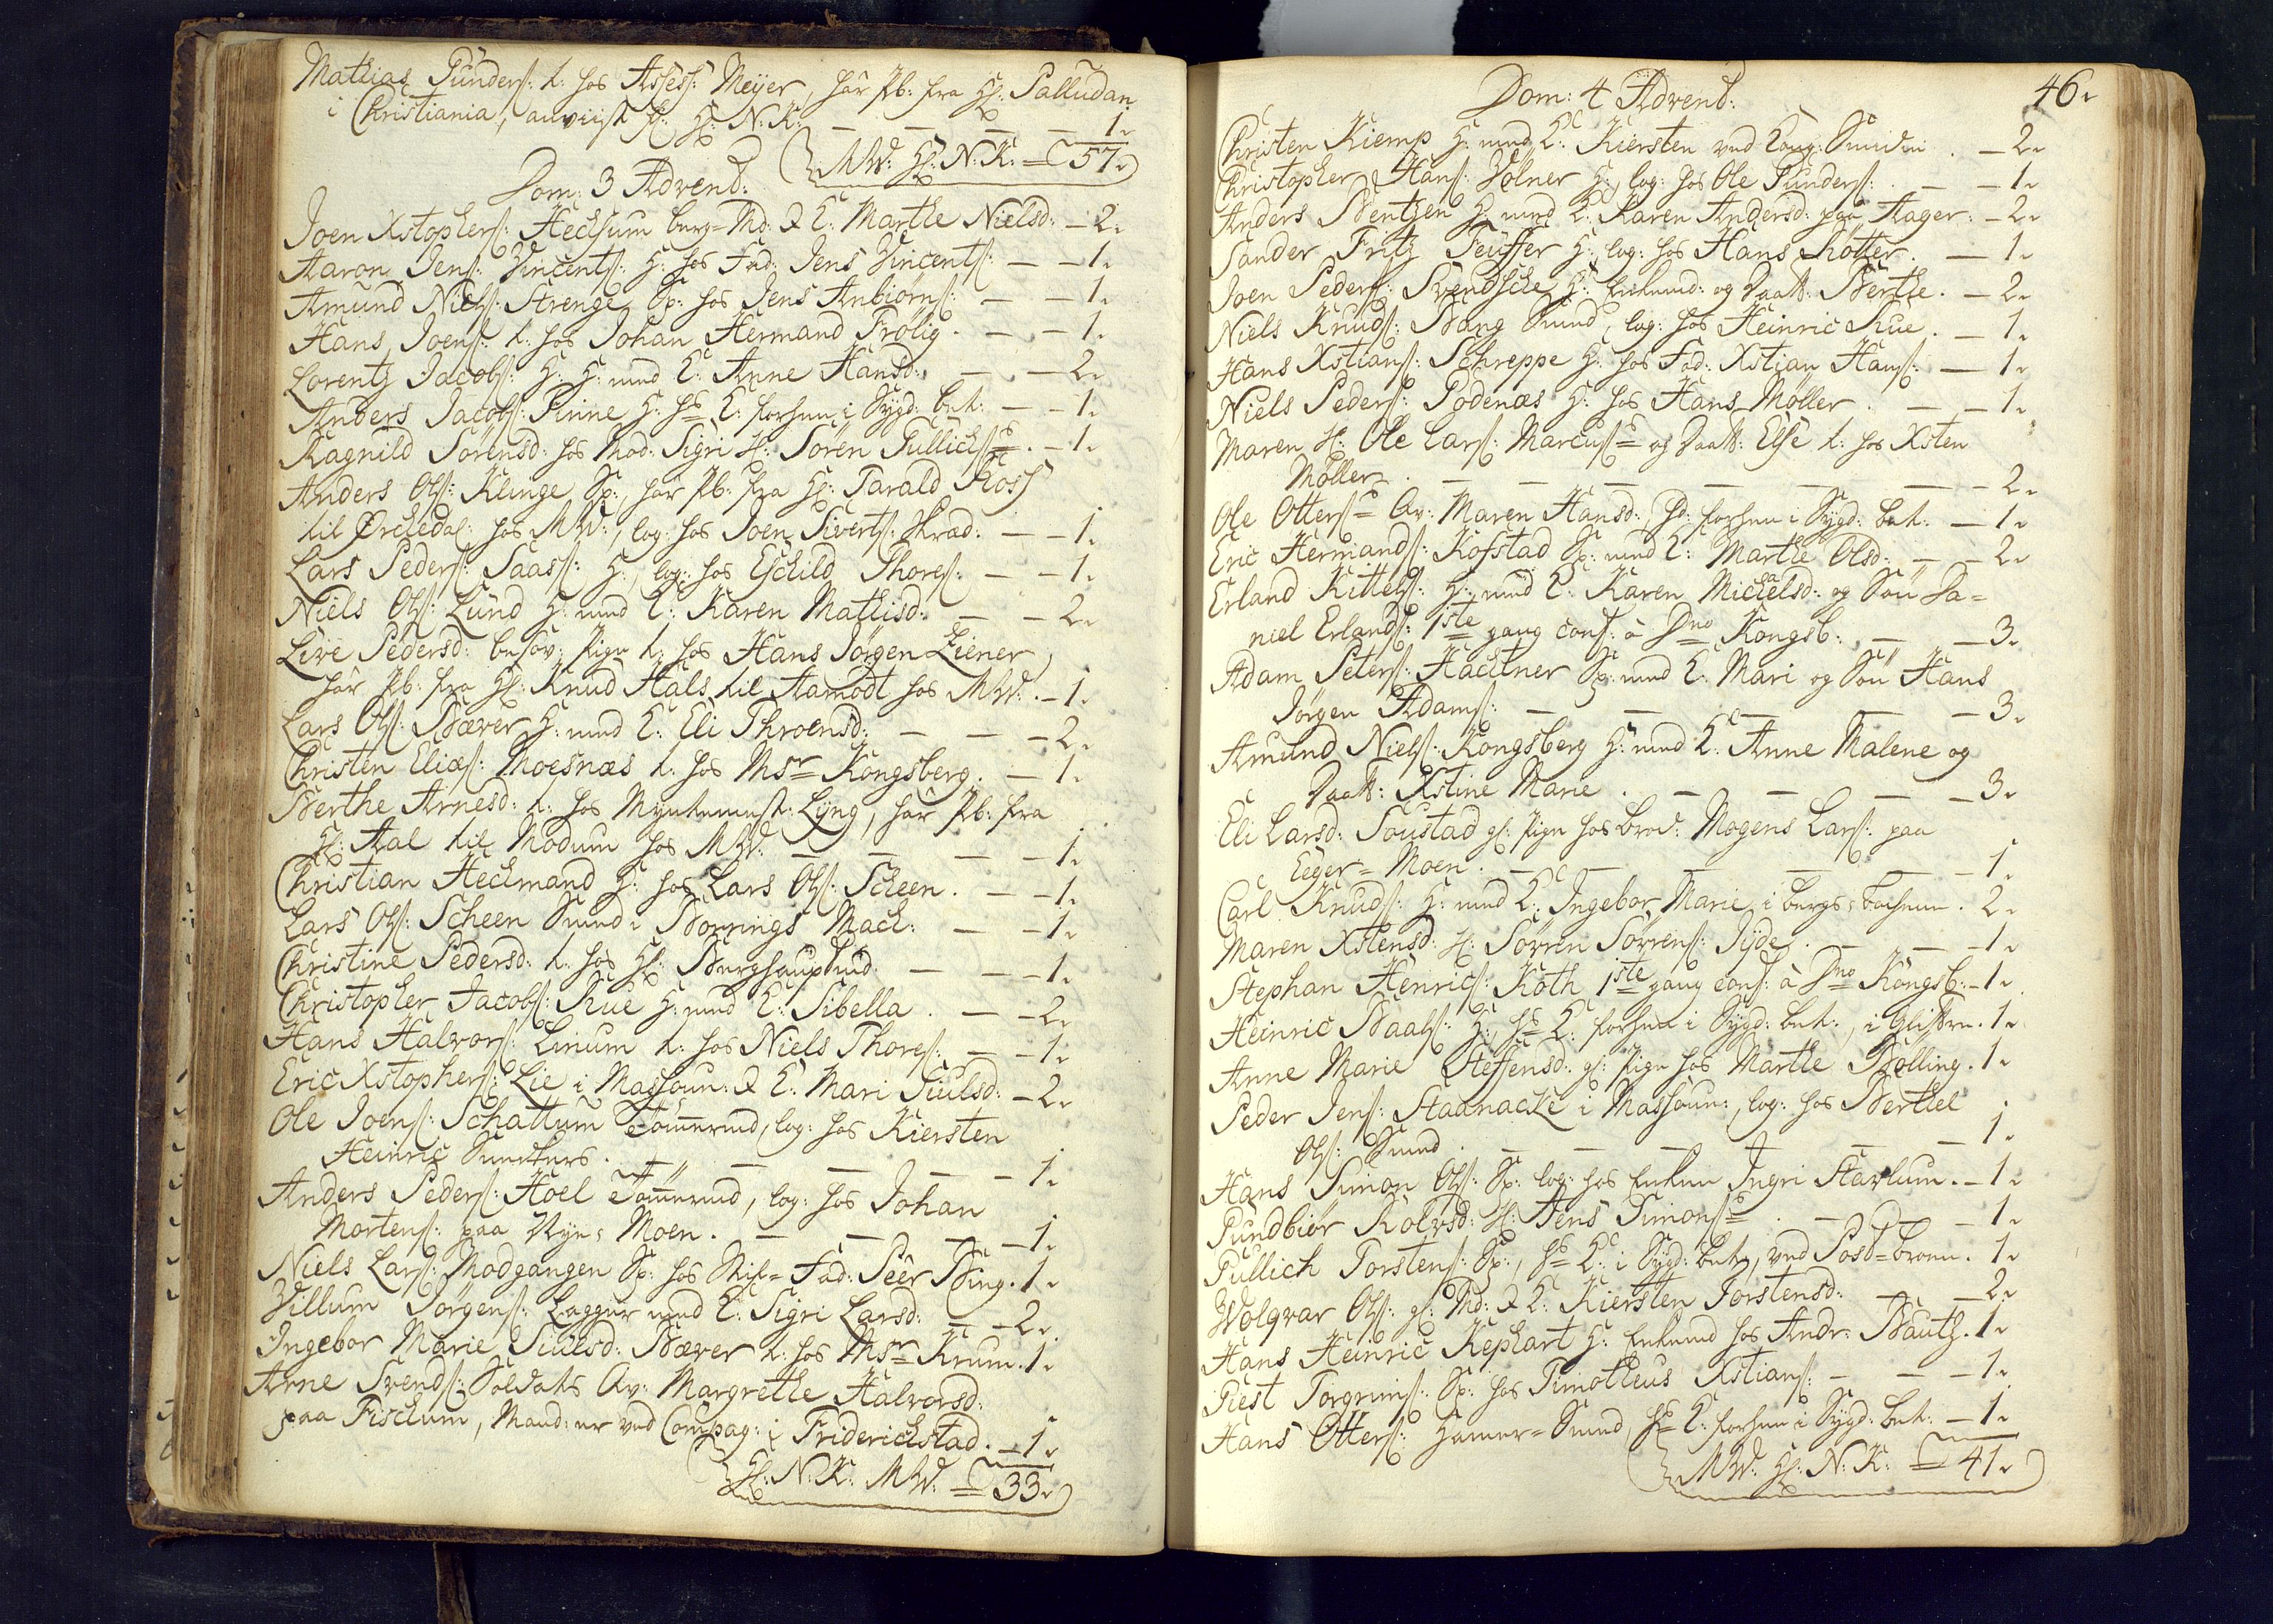 Mathias Gunders: t: hos Assess: Meyer, har Pb: fra Hr: Palludan
i Christiania, anviist fr: Hr: N: K: — — — — 1.
MW: Hr: N: K: = 57.
Dom: 3 Advent:
Joen Xstophers: Hechsum berg=Md: & E: Marthe Nielsd: — 2.
Aaron Jens: Vincents: H: hos Fad: Jens Vincents: — — 1.
Amund Niels: Strenge Sp: hos Jens Anbiørns: — — 1.
Hans Joens: t: hos Johan Hermand Frølig. — — 1.
Lorentz Jacobs: H: H: med E: Anne Hansd: — — 2.
Anders Jacobs: Finne H: hs E: forhen i Sygd: bet: — — 1.
Ragnild Sørensd: hos Mod: Sigri H: Søren Gullichs: — 1.
Anders Ols: Klinge Sp:, har Pb: fra Hr: Tarald Ross
til Ørchedal: hos MW:, log: hos Joen Siverts: Skræd: — — 1.
Lars Peders: Saass: H:, log: hos Eschild Thores: — — 1.
Niels Ols: Lund H: med E: Karen Mathisd: — — 2.
Live Pedersd: besov: Pige t: hos Hans Jørgen Leiener,
har Pb: fra Hr: Knud Hals til Aamodt hos MW: — 1.
Lars Ols: Bæver H: med E: Eli Throensd: — — — 2.
Christen Elias: Moesnæs t: hos Msr Kongsberg. — 1.
Berthe Arnesd: t: hos Myntemest: Lyng, har Pb: fra
Hr: Aal til Modum hos MW: — — — — 1.
Christian Heckmand H: hos Lars Ols: Scheen. — — 1.
Lars Ols: Scheen Smed i Bornings Mach: — — 1.
Christine Pedersd: t: hos Hr: Berghauptmd — — — 1.
Christopher Jacobs: Rue H: med E: Sibella. — — 2.
Hans Halvors: Linum t: hos Niels Thores: — — 1.
Eric Xstophers: Lie i Masoun: & E: Mari Siulsd: — 2.
Ole Joens: Schattum Tømermd, log: hos Kiersten
Heinric Snedkers. — — — — 1.
Anders Peders: Hoel Tømermd, log: hos Johan
Mortens: paa Nye=Moen. — — — 1.
Niels Lars: Modgangen Sp: hos Stif=Fad: Peer Bing. 1.
Villum Jørgens: Lægger med E: Sigri Larsd: — — 2.
Ingebor Marie Siulsd: Bæver t: hos Msr Krum. 1.
Arne Svends: Soldats Qv: Margrethe Halvorsd:
paa Fischum, Mand: er ved Compag: i Friderichstad. — 1.
Hr: N: K: MW: = 33.
46.
Dom: 4 Advent:
Christen Kiemp H: med E: Kiersten ved Tang: Smiden. — 2.
Christopher Hans: Volner H:, log: hos Ole Gunders: — — 1.
Anders Bentzen H: med E: Karen Andersd: paa Aager: — 2.
Sander Fritz Teuffer H: log: hos Hans Rotter. — 1.
Joen Peders: Svendsche H: Enkemd: og Datt: Berthe. — 2.
Niels Knuds: Bang Smed, log: hos Heinric Rue. — 1.
Hans Xstians: Schreppe H: hos Fad: Xstian Hans: — 1.
Niels Peders: Podenæs H: hos Hans Møller. — — 1.
Maren H: Ole Lars: Marcuss: og Datt: Else t: hos Xsten
Møller. — — — — — — 2.
Ole Otters: Qv: Maren Hansd:, hd: forhen i Sygd: bet: — 1.
Eric Hermands: Kofstad Sp: med E: Marthe Olsd: — — 2.
Erland Kittels: H: med E: Karen Michelsd: og Søn Da=
niel Erlands: 1ste gang conf: à Dno Kongsb: — — 3.
Adam Peters: Hachtner Sp: med E: Mari og Søn Hans
Jørgen Adams: — — — — — 3.
Amund Niels: Kongsberg H: med E: Anne Malene og
Datt: Xstine Marie. — — — — 3.
Eli Larsd: Soustad gl: Pige hos Brod: Mogens Lars: paa
Eeger=Moen. — — — — — 1.
Carl Knuds: H: med E: Ingebor Marie i bergs=bachene. 2.
Maren Xstensd: H: Sørren Sørrens: Syde. — — — 1.
Stephan Henrics: Koth 1ste gang conf: à Dno Kongsb: — 1.
Heinric Baals: H:, hs E: forhen i Sygd: bet:, i Glittre. 1.
Anne Marie Steffensd: gl: Pige hos Marthe Bolling. 1.
Peder Jens: Staanacke i Masoun:, log: hos Berthel
Ols: Smed. — — — — — 1.
Hans Simon Ols: Sp: log: hos Enken Ingri Starlum. — 1.
Gundbiør Rolvsd: H: Jens Simons: — — — 1.
Gullich Torstens: Sp:, hs E: i Sygd: bet:, ved Post=broen. 1.
Wolqvar Ols: gl: Md: & E: Kiersten Torstensd: — — 2.
Hans Heinric Kephart H: Enkemd hos Andr: Bautz. 1.
Giest Torgrims: Sp: hos Timotheus Xstians: — — — 1.
Hans Otters: Hamer=Smed, hs E: forhen i Sygd: bet: — 1.
MW: Hr: N: K: = 41.